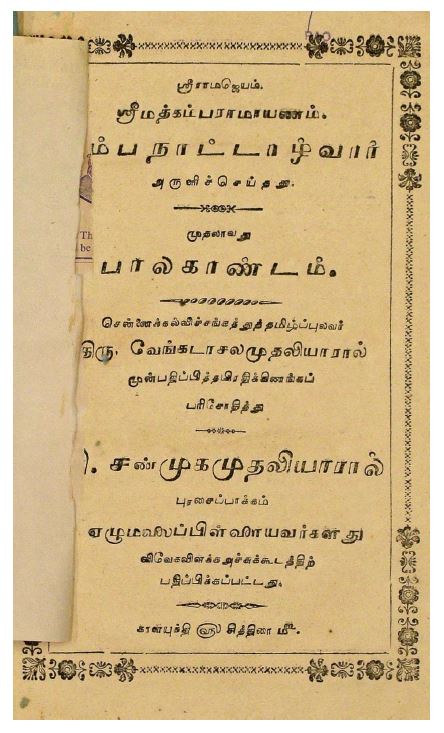 ஸ்ரீராமஜெயம்.
ஸ்ரீமத்கம்பராமாயணம்.
ம்பநாட்டாழ்வார்
அருளிச்செய்தது.
முதலாவது
Th
be
பாலகாண்டம்.
சென்னைக்கல்விச்சங்கத்துத்தமிழ்ப்புலவர்
திரு. வேங்கடாசலமுதலியாரால்
முன்பதிப்பித்தபிரதிக்கிணங்கப்
பரிசோதித்து
சண்முகமுதலியாரால்
புரசைப்பாக்கம்
ஏழுமலைப்பிள்ளையவர்களது
விவேகவிளக்கஅச்சுக்கூடத்திற்
பதிப்பிக்கப்பட்டது.
காளயுக்தி ௵ சித்திரை ௴.